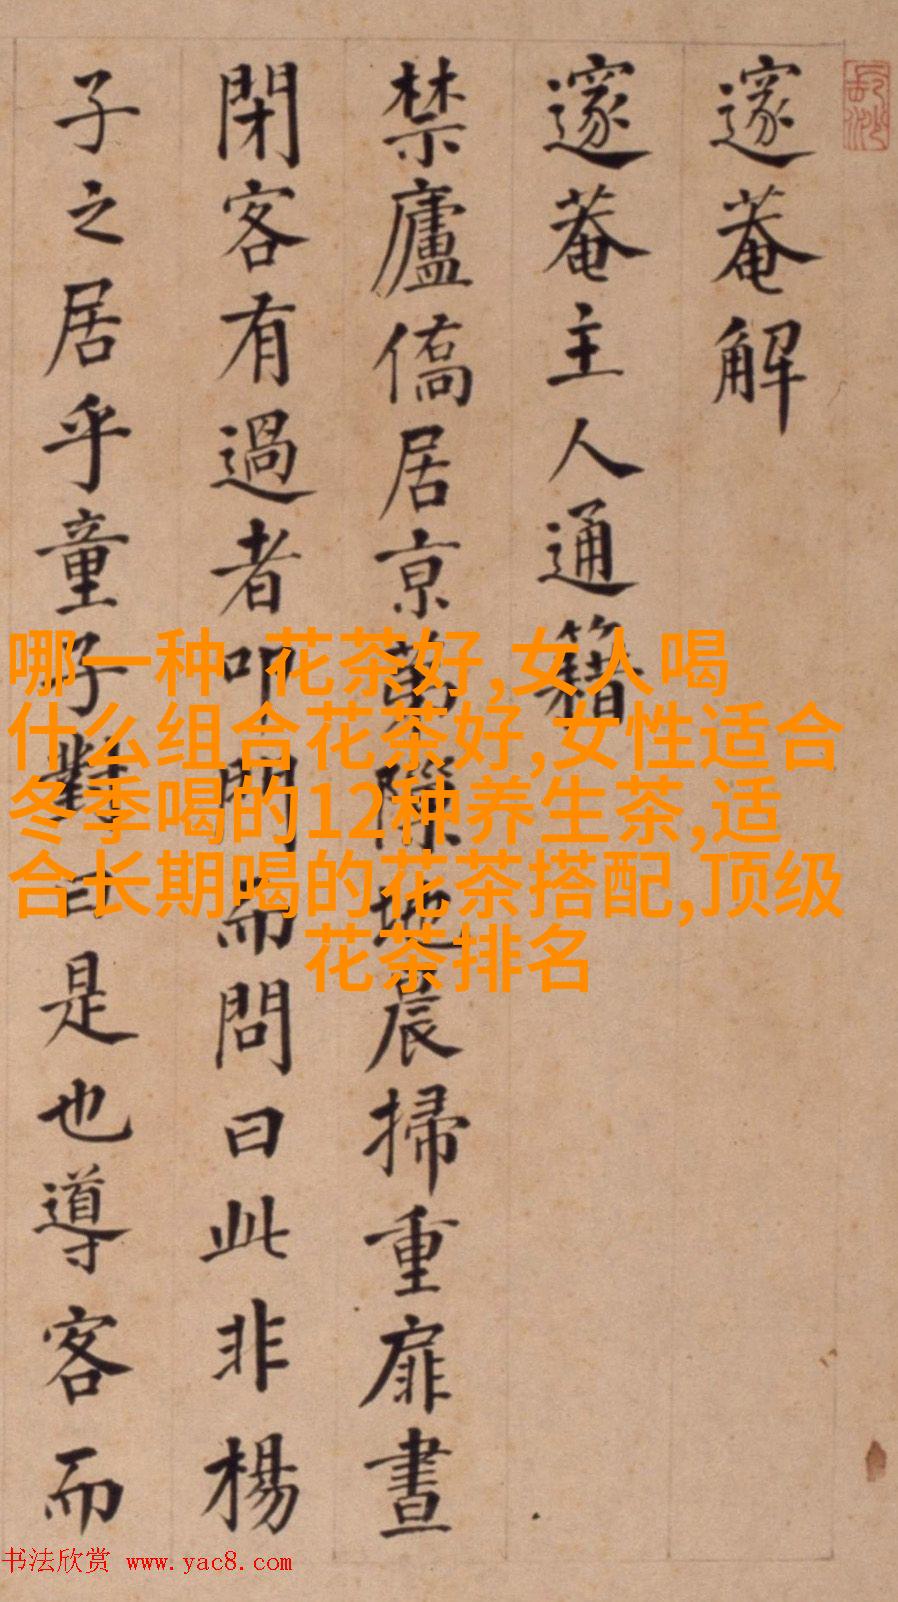 邃菴解
邃菴主人通籍
禁廬僑居京地晨掃重扉晝
閉客有過者叩門而問曰此非楊
子之居乎童子對曰是也導客而
哪一种 花茶好,女人喝
什么组合花茶好,女性适合
冬季喝的12种养生茶,适
合长期喝的花茶搭配,顶级
花茶排名
书法欣赏 www.yac8.com